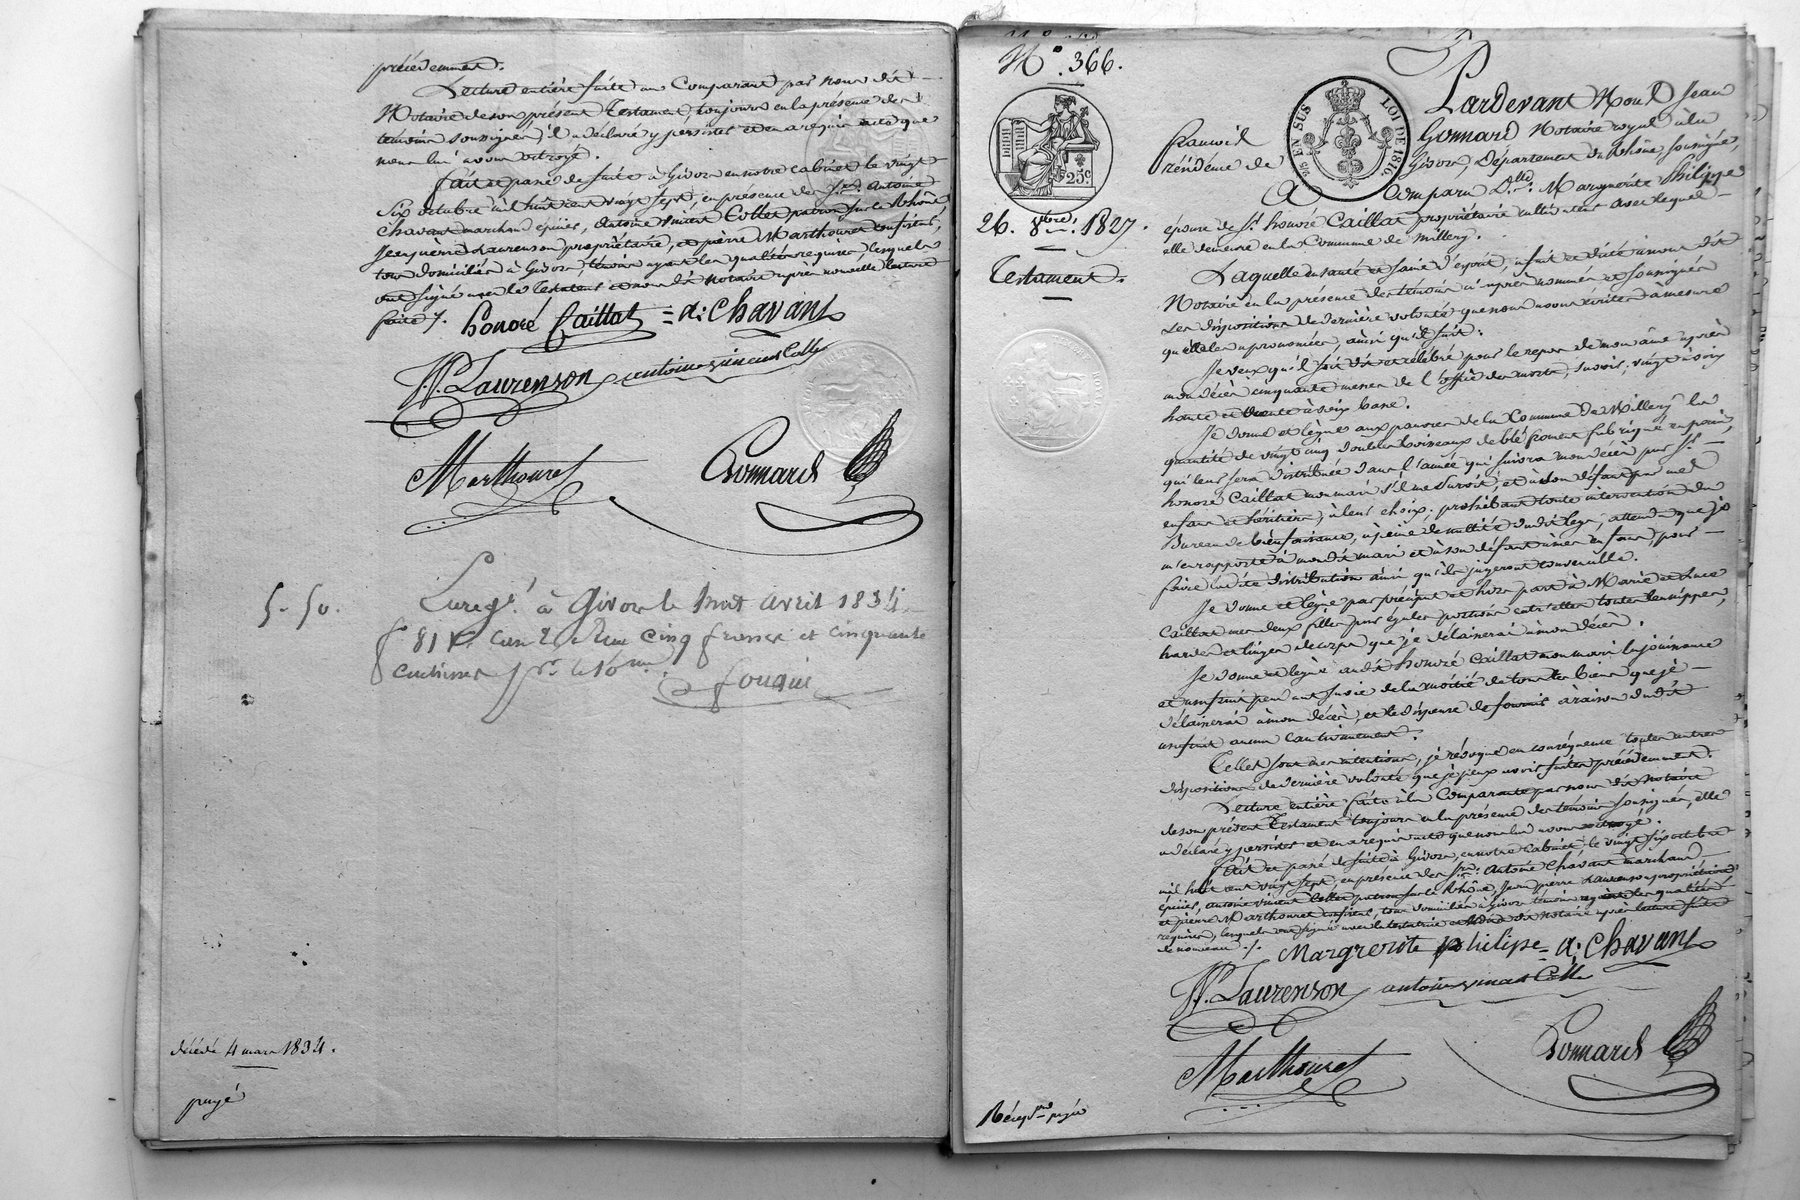 précédemment.
Lecture entière faite au Comparant par nous dit
Notaire de son présent Testament, toujours en la présence des
témoins soussignés, il a déclaré y persister et en a requis acte que
nous lui avons octroyé.
Fait et passé de suite à Givors en notre cabinet le vingt
six octobre mil huit cent vingt sept, en présence des Srs. Antoine
Chavant marchand épicier, Antoine Vincent Collet patron sur le Rhône,
Jean pierre Laurenson propriétaire, et pierre Marthouret confiseur,
tous domiciliés à Givors, témoins ayant les qualités requises, lesquels
ont signé avec le Testateur et nous dit Notaire après nouvelle lecture
faite /.
honoré Caillat = a: Chavant
JP. Laurenson antoine vincent Collet
Marthouret Gonnard
5-50.
Enregé. à Givors le huit avril 1834
f° 81 Vo. Cinq francs et cinquante
centimes pr. le 10me.
décédé 4 mars 1834.
payé
N° 366.
25c
26. 8bre. 1827.
Testament.
25 EN SUS
LOI DE 1816
Pardevant Nous Jean
françois Gonnard Notaire royal à la
résidence de Givors, Département du Rhône, soussigné,
A Comparu Dlle. Marguerite Philippe
épouse de Sr. honoré Caillat propriétaire cultivateur avec lequel
elle demeure en la Commune de Millery.
Laquelle en santé et saine d'esprit, a fait et dicté à nous dit
Notaire en la présence des témoins ci après nommés et soussignés
ses dispositions de dernière volonté que nous avons écrites à mesure
qu'elle les a prononcées, ainsi qu'il suit:
Je veux qu'il soit dit et célébré pour le repos de mon âme après
mon décès cinquante messes de l'office des morts, savoir; vingt à voix
haute et trente à voix basse.
Je donne et lègue aux pauvres de la Commune de Millery la
quantité de vingt cinq doubles boisseaux de blé froment fabriqué en pain,
qui leur sera distribuée dans l'année qui suivra mon décès par Sr.
honoré Caillat mon mari s'il me survit, et à son défaut par mes
enfans et héritiers, à leur choix; prohibant toute intervention du
Bureau de bienfaisance, à peine de nullité dudit legs, attendu que je
m'en rapporte à mon dit mari et à son défaut à mes enfans, pour
faire ladite distribution ainsi qu'ils jugeront convenable.
Je donne et lègue par préciput et hors part à Marie et Luce
Caillat mes deux filles par égales portions entr'elles toutes les nippes,
hardes et linges de corps que je délaisserai à mon décès.
Je donne et lègue audit honoré Caillat mon mari la jouissance
et usufruit pendant sa vie de la moitié de tous les biens que je
délaisserai à mon décès, et le dispense de fournir à raison dudit
usufruit aucun cautionnement.
Telles sont mes intentions, je révoque en conséquence toutes autres
dispositions de dernière volonté que je peux avoir faites précédemment.
Lecture entière faite à la Comparante par nous dit Notaire
de son présent Testament toujours en la présence des témoins soussignés, elle
a déclaré y persister et en a requis acte que nous lui avons octroyé.
Fait et passé de suite à Givors, en notre cabinet, le vingt six octobre
mil huit cent vingt sept, en présence des Srs. Antoine Chavant marchand
épicier, Antoine vincent Collet patron sur le Rhône, Jean pierre Laurenson propriétaire
et pierre Marthouret confiseur, tous domiciliés à Givors témoins ayant les qualités
requises, lesquels ont signé avec la testatrice et Nous dit Notaire après lecture faite
de nouveau ./.
Margverite philipe = a: Chavant
JP. Laurenson antoine vincent Collet
Marthouret Gonnard
payée